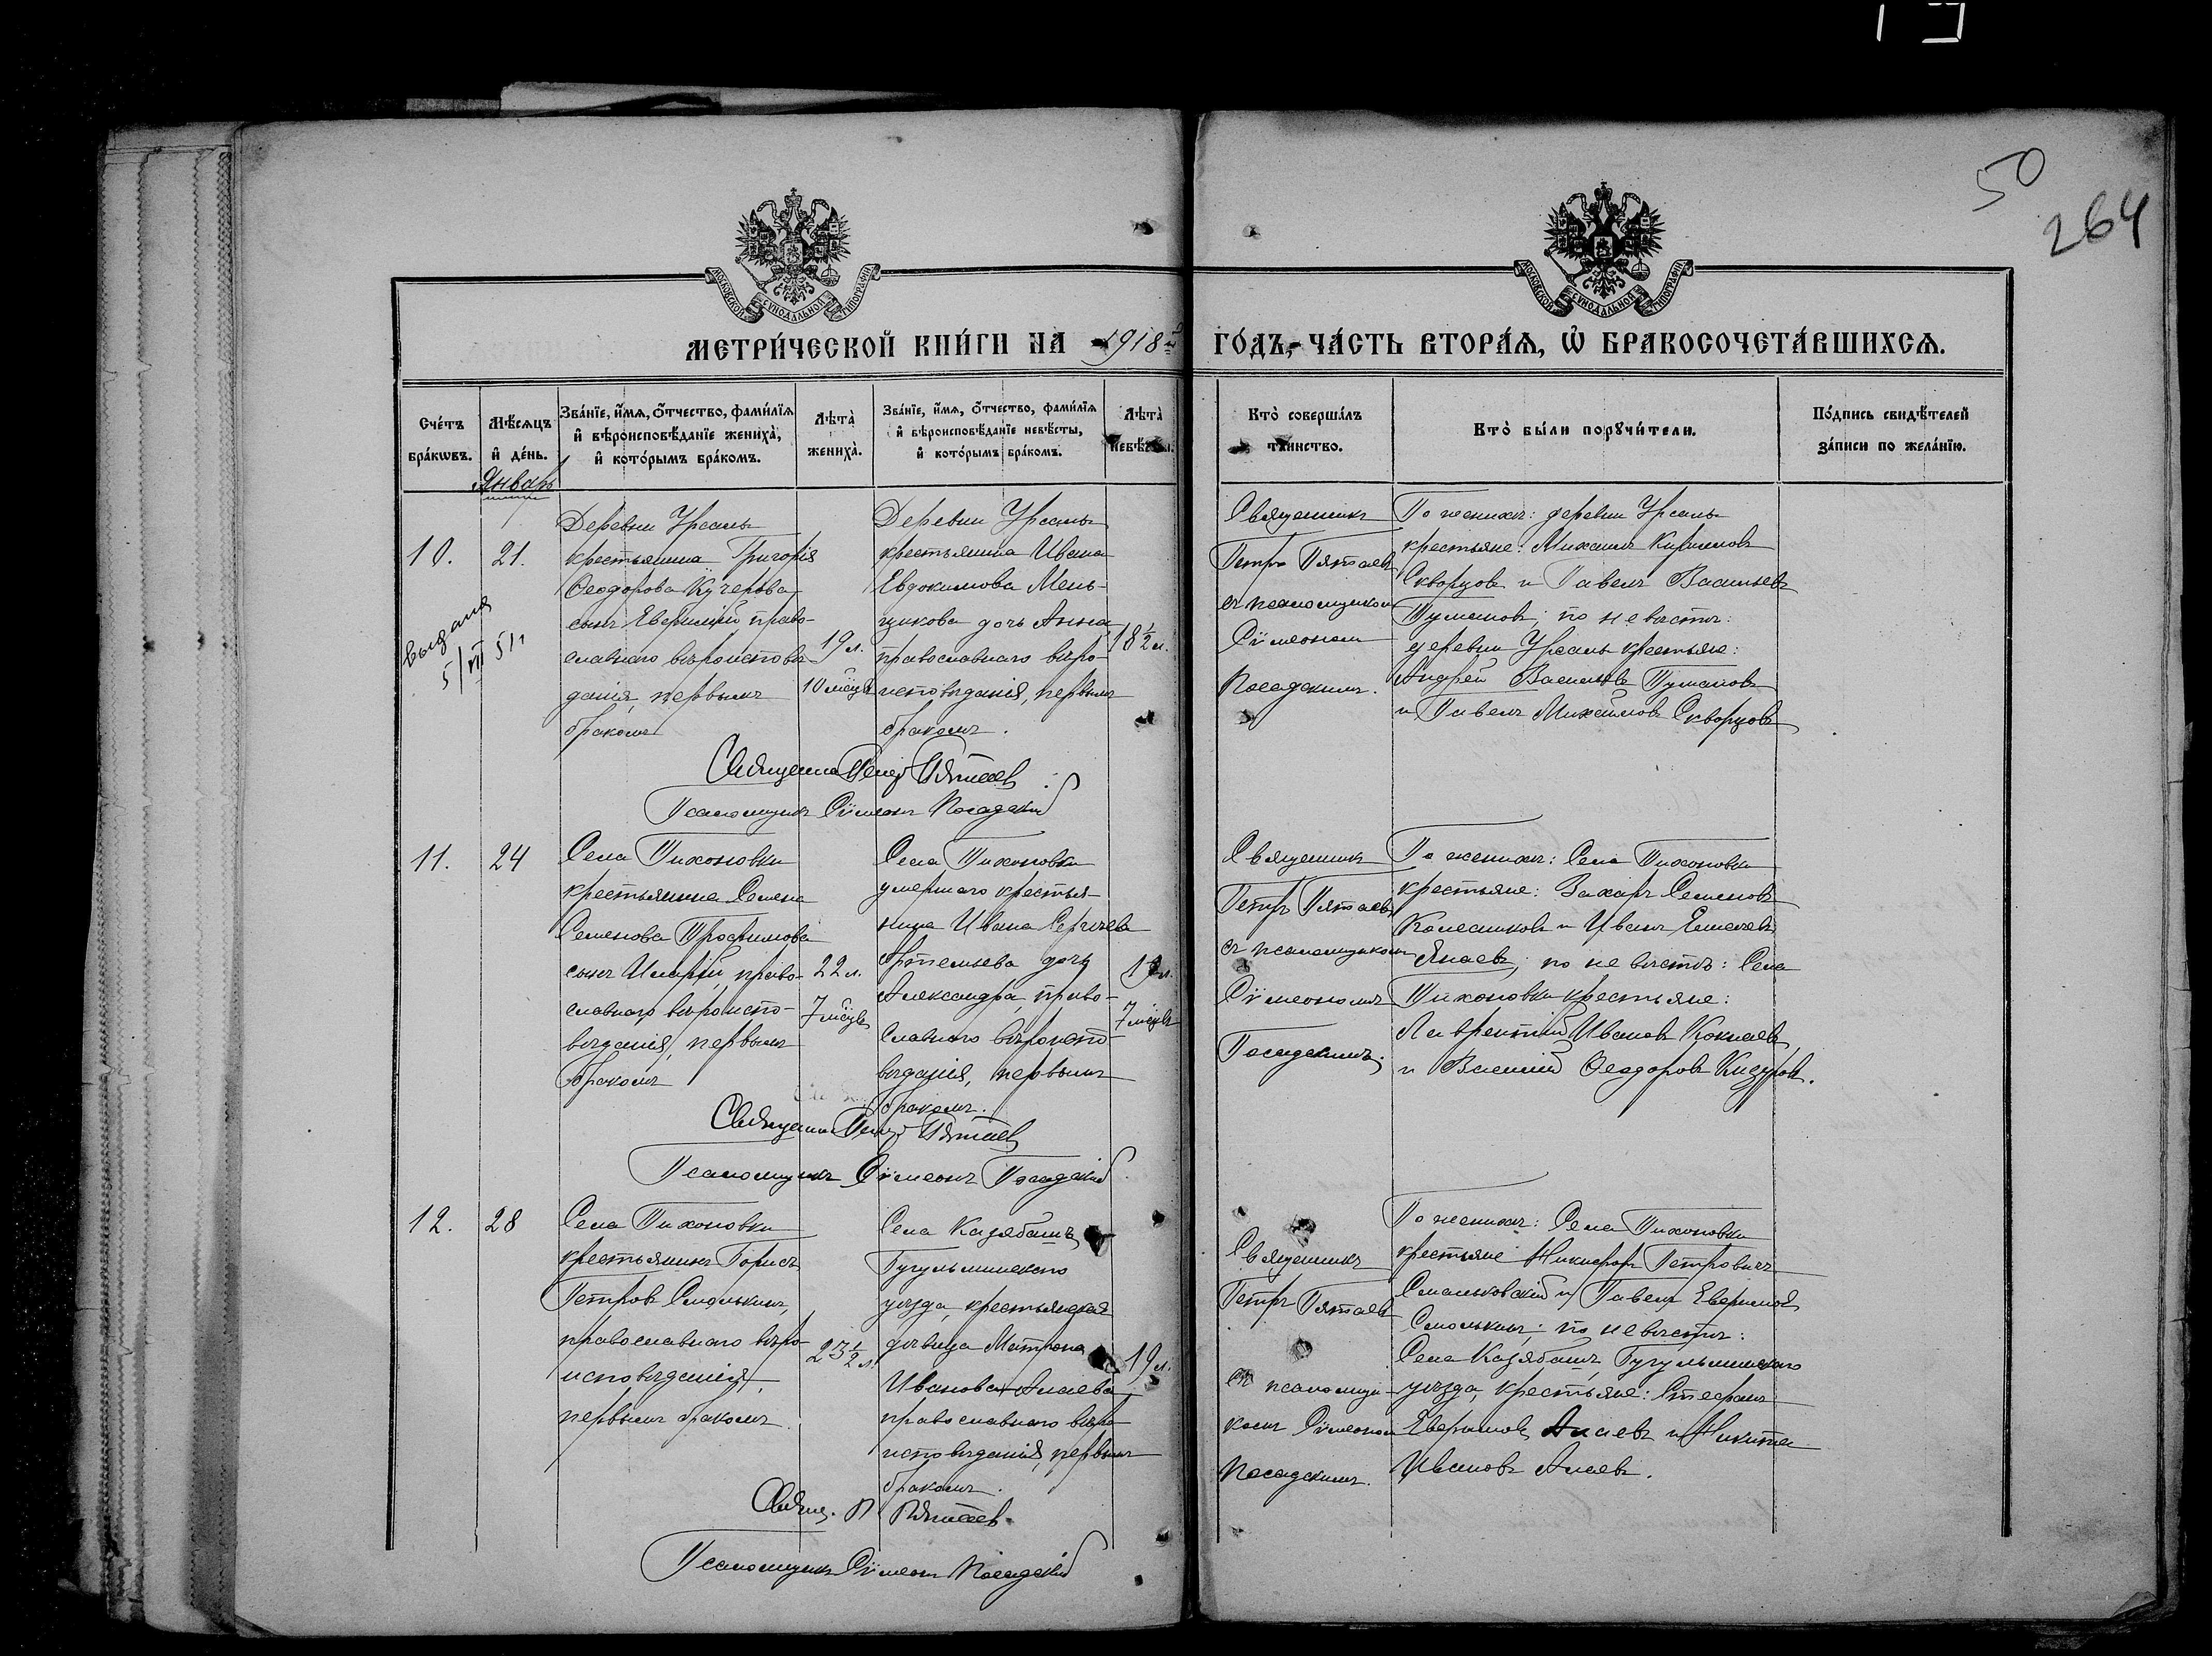 50
264
МОСКОВСКОЙ СѴНОДАЛЬНОЙ ТИПОГРАФІИ
МОСКОВСКОЙ СѴНОДАЛЬНОЙ ТИПОГРАФІИ
МЕТРИ́ЧЕСКОЙ КНИ́ГИ НА 1918 й ГО́ДЪ, ЧА́СТЬ ВТОРА́Ѧ, Ѡ БРАКОСОЧЕТА́ВШИХСѦ.
Сче́тъ бра́кѡвъ.
Мѣ́сѧцъ и де́нь.
Зва́нїе, и́мѧ, о́тчество, фами́лїѧ и вѣроисповѣ́данїе жениха̀, и кото́рымъ бра́комъ.
Лѣта̀ жениха̀.
Зва́нїе, и́мѧ, о́тчество, фами́лїѧ и вѣроисповѣ́данїе невѣ́сты, и кото́рымъ бра́комъ.
Лѣта̀ невѣ́сты.
Кто̀ соверша́лъ та́инство.
Кто̀ бы́ли порꙋчи́тели.
По́дпись свидѣ́телей за́писи по жела́нїю.
Январь
10.
21.
выдана
5/VII 51 г
Деревни Урсалы
крестьянина Григорія
Ѳеодорова Кучерова
сынъ Евѳимій право-
славнаго вѣроисповѣ-
данія, первымъ
бракомъ
19 л.
10 мѣсцв
Деревни Урсалы
крестьянина Ивана
Евдокимова Мень-
щикова дочь Анна
православнаго вѣро-
исповѣданія, первымъ
бракомъ.
18 ½ л.
Священникъ
Петръ Пятаевъ
съ псаломщикомъ
Сѵмеономъ
Посадскимъ.
По женихѣ: деревни Урсалы
крестьяне: Михаилъ Кирилловъ
Скворцовъ и Павелъ Васильевъ
Тумановъ; по невѣстѣ:
деревни Урсалы крестьяне:
Андрей Васильевъ Тумановъ
и Павелъ Михайловъ Скворцовъ
Священникъ Петръ Пятаевъ
Псаломщикъ Сѵмеонъ Посадскій
11.
24
Села Тихоновки
крестьянина Семена
Семенова Трофимова
сынъ Иларій, право-
славнаго вѣроиспо-
вѣданія, первымъ
бракомъ
22 л.
7 мѣсцв
Села Тихоновки
умершаго крестья-
нина Ивана Сергѣева
Артемьева дочь
Александра, право-
славнаго вѣроиспо-
вѣданія, первымъ
бракомъ.
7 мѣсцв
Священникъ
Петръ Пятаевъ
съ псаломщикомъ
Сѵмеономъ
Посадскимъ.
По женихѣ: Села Тихоновки
крестьяне: Захаръ Семеновъ
Колесниковъ и Иванъ
по невѣстѣ: Села
Тихоновки крестьяне:
Лаврентій Ивановъ
и Василій Ѳеодоровъ
Священникъ Петръ Пятаевъ
Псаломщикъ Сѵмеонъ Посадскій
12.
28
Села Тихоновки
крестьянинъ Борисъ
Петровъ Смолькинъ,
православнаго вѣро-
исповѣданія,
первымъ бракомъ
23 ½ л.
Села Казябашъ
Бугульминскаго
уѣзда, крестьянская
дѣвица Матрона
Иванова Алаева,
православнаго вѣро-
исповѣданія, первымъ
бракомъ.
19 л.
Священникъ
Петръ Пятаевъ
съ псаломщи-
комъ Сѵмеономъ
Посадскимъ.
По женихѣ: Села Тихоновки
крестьяне Никифоръ Петровичъ
Смольковскій и Павелъ Евѳимовъ
Смолькинъ; по невѣстѣ:
Села Казябашъ, Бугульминскаго
уѣзда, крестьяне: Стефанъ
Евѳимовъ Алаевъ и Никита
Ивановъ Алаевъ.
Свящ. П Пятаевъ
Псаломщикъ Сѵмеонъ Посадскій